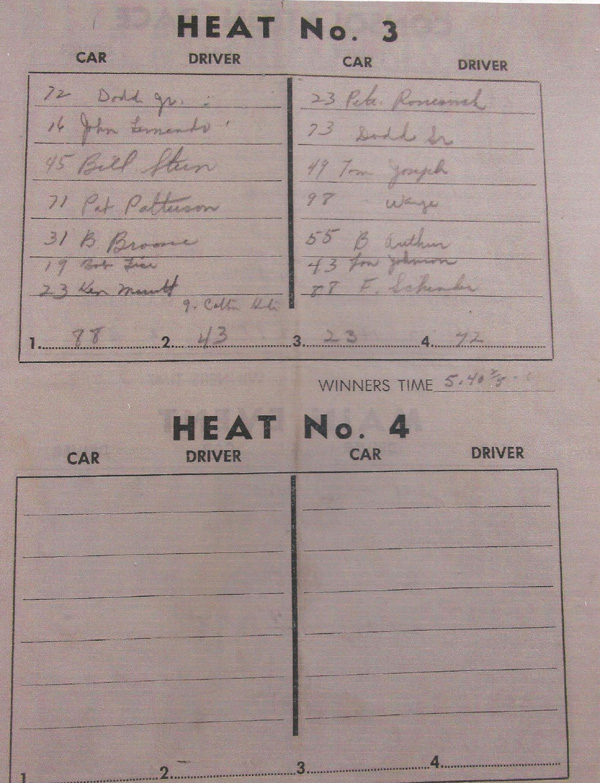 HEAT No. 3
CAR DRIVER CAR DRIVER
72 Dodd Jr. 23 Pete
16 John 73 Dodd Sr
45 Bill Stein 49 Tom Joseph
71 Pat Patterson 98 Wayne
31 B Broome 55 B Arthur
19 Bob 43 Johnson
23 Ken 87 F.
9.
1. 88 2. 43 3. 23 4. 72
WINNERS TIME 5.40
HEAT No. 4
CAR DRIVER CAR DRIVER
1. 2. 3. 4.